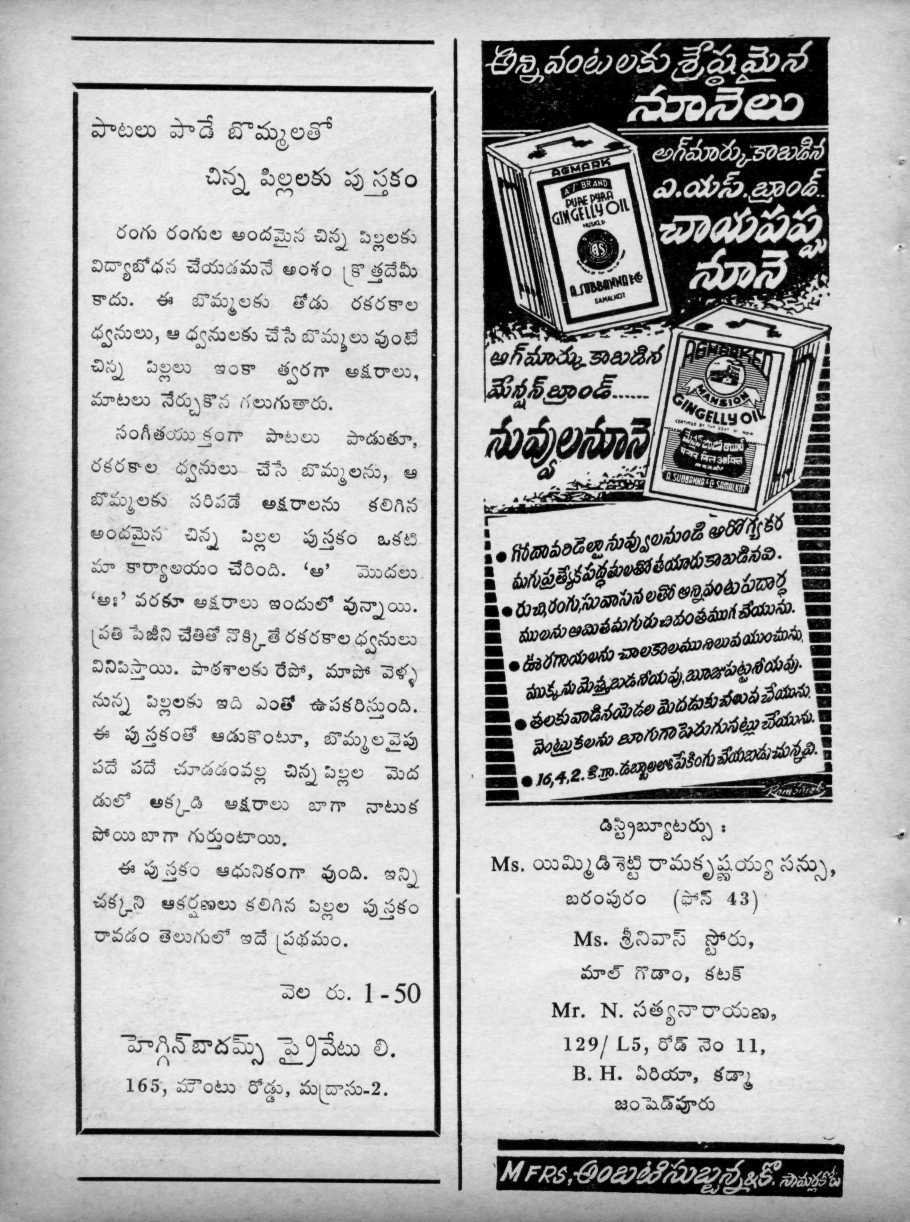 పాటలు పాడే బొమ్మలతో
చిన్న పిల్లలకు పుస్తకం
రంగు రంగుల అందమైన చిన్న పిల్లలకు
విద్యాబోధన చేయడమనే అంశం క్రొత్తదేమీ
కాదు. ఈ బొమ్మలకు తోడు రకరకాల
ధ్వనులు, ఆ ధ్వనులకు చేసే బొమ్మలు వుంటే
చిన్న పిల్లలు ఇంకా త్వరగా అక్షరాలు,
మాటలు నేర్చుకొన గలుగుతారు.
సంగీతయుక్తంగా పాటలు పాడుతూ,
రకరకాల ధ్వనులు చేసే బొమ్మలను, ఆ
బొమ్మలకు సరిపడే అక్షరాలను కలిగిన
అందమైన చిన్న పిల్లల పుస్తకం ఒకటి
మా కార్యాలయం చేరింది. ‘అ’ మొదలు
‘అః’ వరకూ అక్షరాలు ఇందులో వున్నాయి.
ప్రతి పేజీని చేతితో నొక్కితే రకరకాల ధ్వనులు
వినిపిస్తాయి. పాఠశాలకు రేపో, మాపో వెళ్ళ
నున్న పిల్లలకు ఇది ఎంతో ఉపకరిస్తుంది.
ఈ పుస్తకంతో ఆడుకొంటూ, బొమ్మలవైపు
పదే పదే చూడడంవల్ల చిన్న పిల్లల మెద
డులో అక్కడి అక్షరాలు బాగా నాటుక
పోయి బాగా గుర్తుంటాయి.
ఈ పుస్తకం ఆధునికంగా వుంది. ఇన్ని
చక్కని ఆకర్షణలు కలిగిన పిల్లల పుస్తకం
రావడం తెలుగులో ఇదే ప్రథమం.
వెల రు. 1-50
హెగ్గిన్‌బాదమ్స్ ప్రైవేటు లి.
165, మౌంటు రోడ్డు, మద్రాసు-2.
అన్ని వంటలకు శ్రేష్ఠమైన
నూనెలు
అగ్‌మార్కు కాబడిన
ఎ.యస్. బ్రాండ్..
చాయపప్పు
నూనె
AGMARK
BRAND
PURE
GINGELLY OIL
AS
A. SUBBANNA & CO
SAMALKOT
అగ్‌మార్కు కాబడిన
మేన్షన్ బ్రాండ్......
నువ్వులనూనె
AGMARKED
MANSION
GINGELLY OIL
A. SUBBANNA & CO SAMALKOT
● గోదావరిడెల్టా నువ్వులనుండి ఆరోగ్యకర
మగు ప్రత్యేక పద్ధతులతో తయారు కాబడినవి.
● రుచి, రంగు, సువాసనలతో అన్ని వంటపదార్థ
ములను అమితమగు రుచివంతముగ చేయును.
● ఊరగాయలను చాలకాలము నిలువయుంచును,
ముక్కను మెత్తబడనీయవు, బూజుపట్టనీయవు.
● తలకు వాడినయెడల మెదడుకు చలువ చేయును,
వెంట్రుకలను బాగుగా పెరుగునట్లు చేయును.
● 16,4,2. కి.గ్రా. డబ్బాలలో పేకింగు చేయబడుచున్నవి.
డిస్ట్రిబ్యూటర్సు :
Ms. యిమ్మిడిశెట్టి రామకృష్ణయ్య సన్సు,
బరంపురం (ఫోన్ 43)
Ms. శ్రీనివాస్ స్టోరు,
మాల్ గొడాం, కటక్
Mr. N. సత్యనారాయణ,
129/ L5, రోడ్ నెం 11,
B. H. ఏరియా, కడ్మా
జంషెడ్‌పూరు
MFRS, అంబటి సుబ్బన్న & కొ. సామర్లకోట